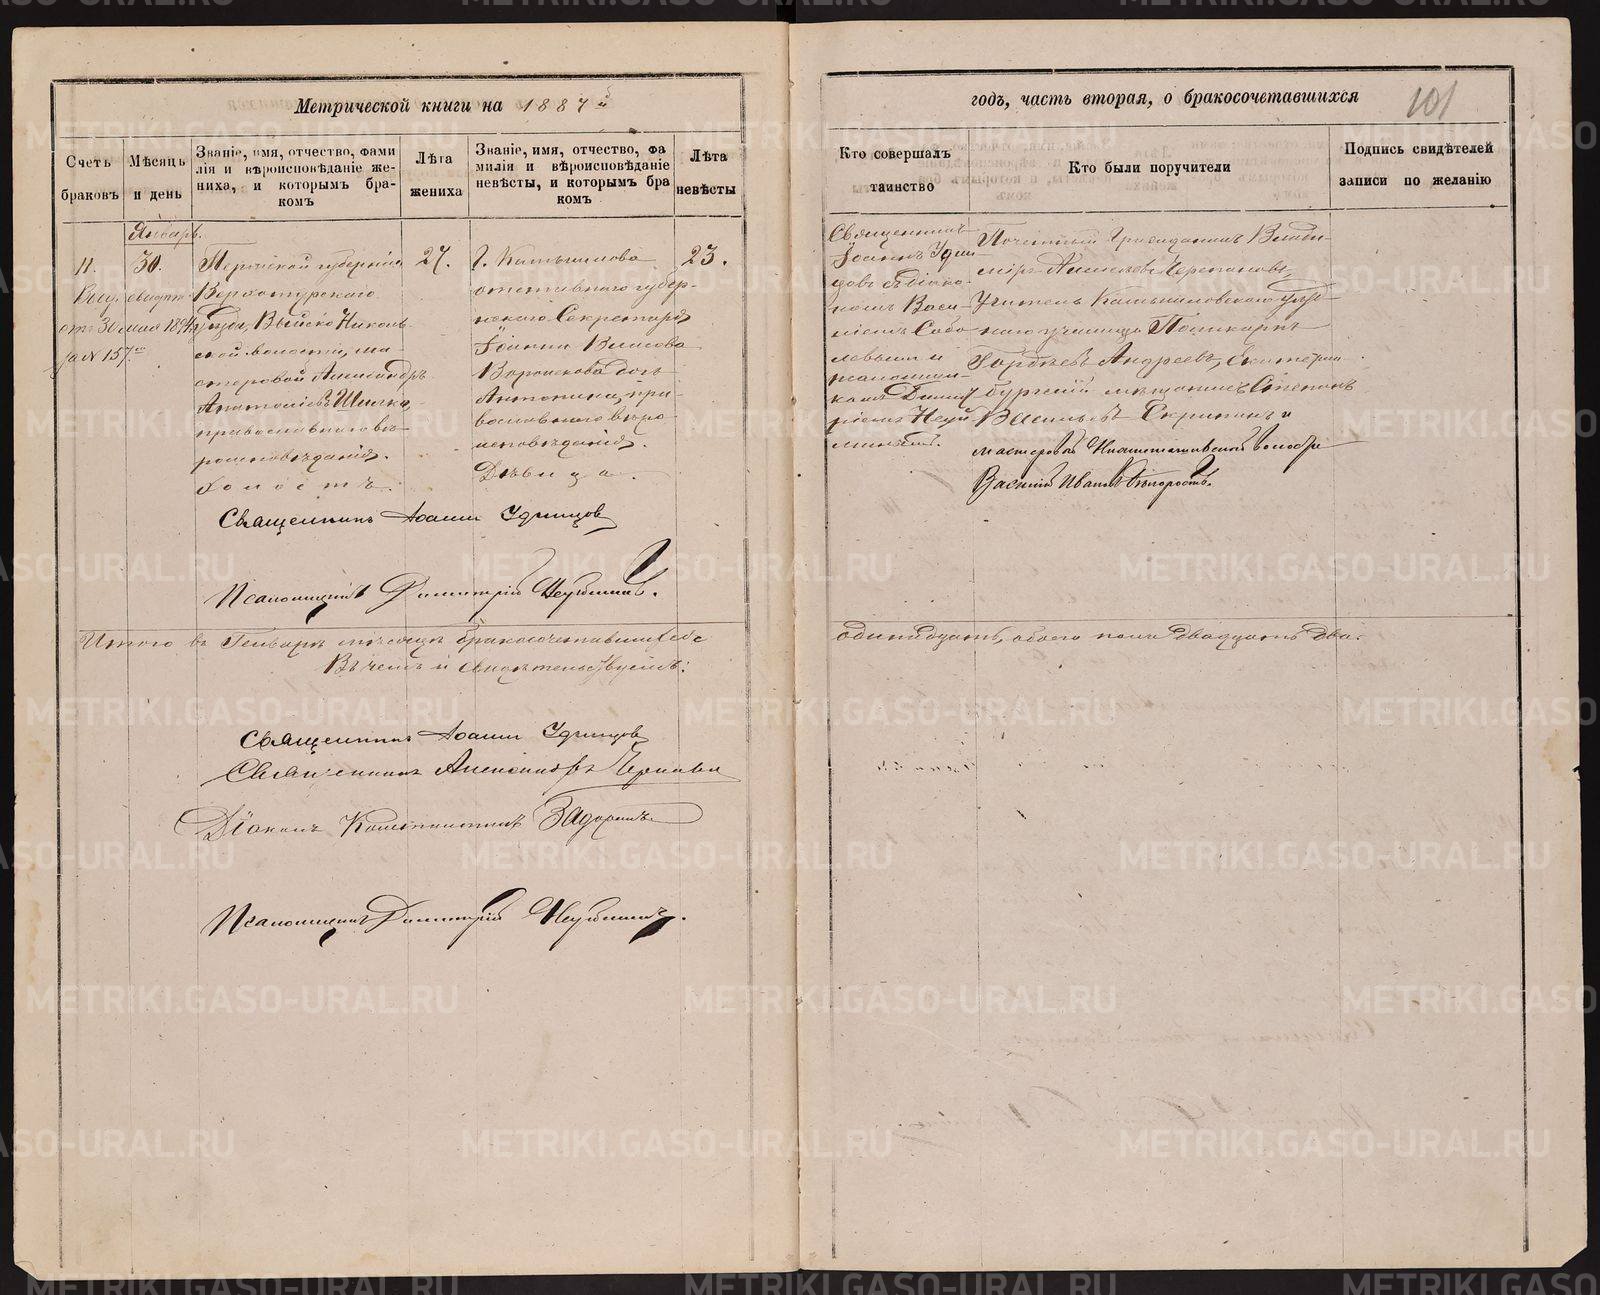 Метрической книги на 1887й
Счетъ браковъ
Мѣсяцъ и день
Званіе, имя, отчество, фами
лія и вѣроисповѣданіе же-
ниха, и которымъ бра-
комъ
Лѣта жениха
Званіе, имя, отчество, фа
милія и вѣроисповѣданіе
невѣсты, и которымъ бра
комъ
Лѣта невѣсты
Январь.
11.
30.
Выд. свидѣт.
отъ 30 мая
за № 157
Пермской губерніи
Верхотурскаго
уѣзда, Выйско Николь-
ской волости, ма-
стеровой Александръ
Анатоліевъ
православнаго вѣ-
роисповѣданія.
Холостъ.
27.
Г. Камышлова
отставнаго губерн-
скаго Секретаря
Іоанна Власова
дочь
Антонина, пра-
вославнаго вѣро-
исповѣданія.
Дѣвица.
23.
Священникъ Іоаннъ Удинцовъ
Псаломщикъ Димитрій
Итого въ Генварѣ мѣсяцѣ бракосочетавшихся
Въ чемъ и свидѣтельствуемъ:
Священникъ Іоаннъ Удинцовъ
Священникъ Александръ
Діаконъ Константинъ Задоринъ
Псаломщикъ Димитрій
годъ, часть вторая, о бракосочетавшихся
101
Кто совершалъ
таинство
Кто были поручители
Подпись свидѣтелей
записи по желанію
Священникъ
Іоаннъ Удин-
цовъ съ діако-
номъ Васи-
ліемъ Собо-
левымъ и
псаломщи-
комъ Димит-
ріемъ
Почетный Гражданинъ Влади-
міръ Алексѣевъ Черепановъ,
Учитель Камышловскаго уѣзд-
наго училища Поликарпъ
Гордѣевъ Андреевъ, Екатерин-
бургскій мѣщанинъ Степанъ
Васильевъ Скрипинъ и
мастеровой волости
Василій Ивановъ
одинадцать, обоего пола двадцать два.
METRIKI.GASO-URAL.RU